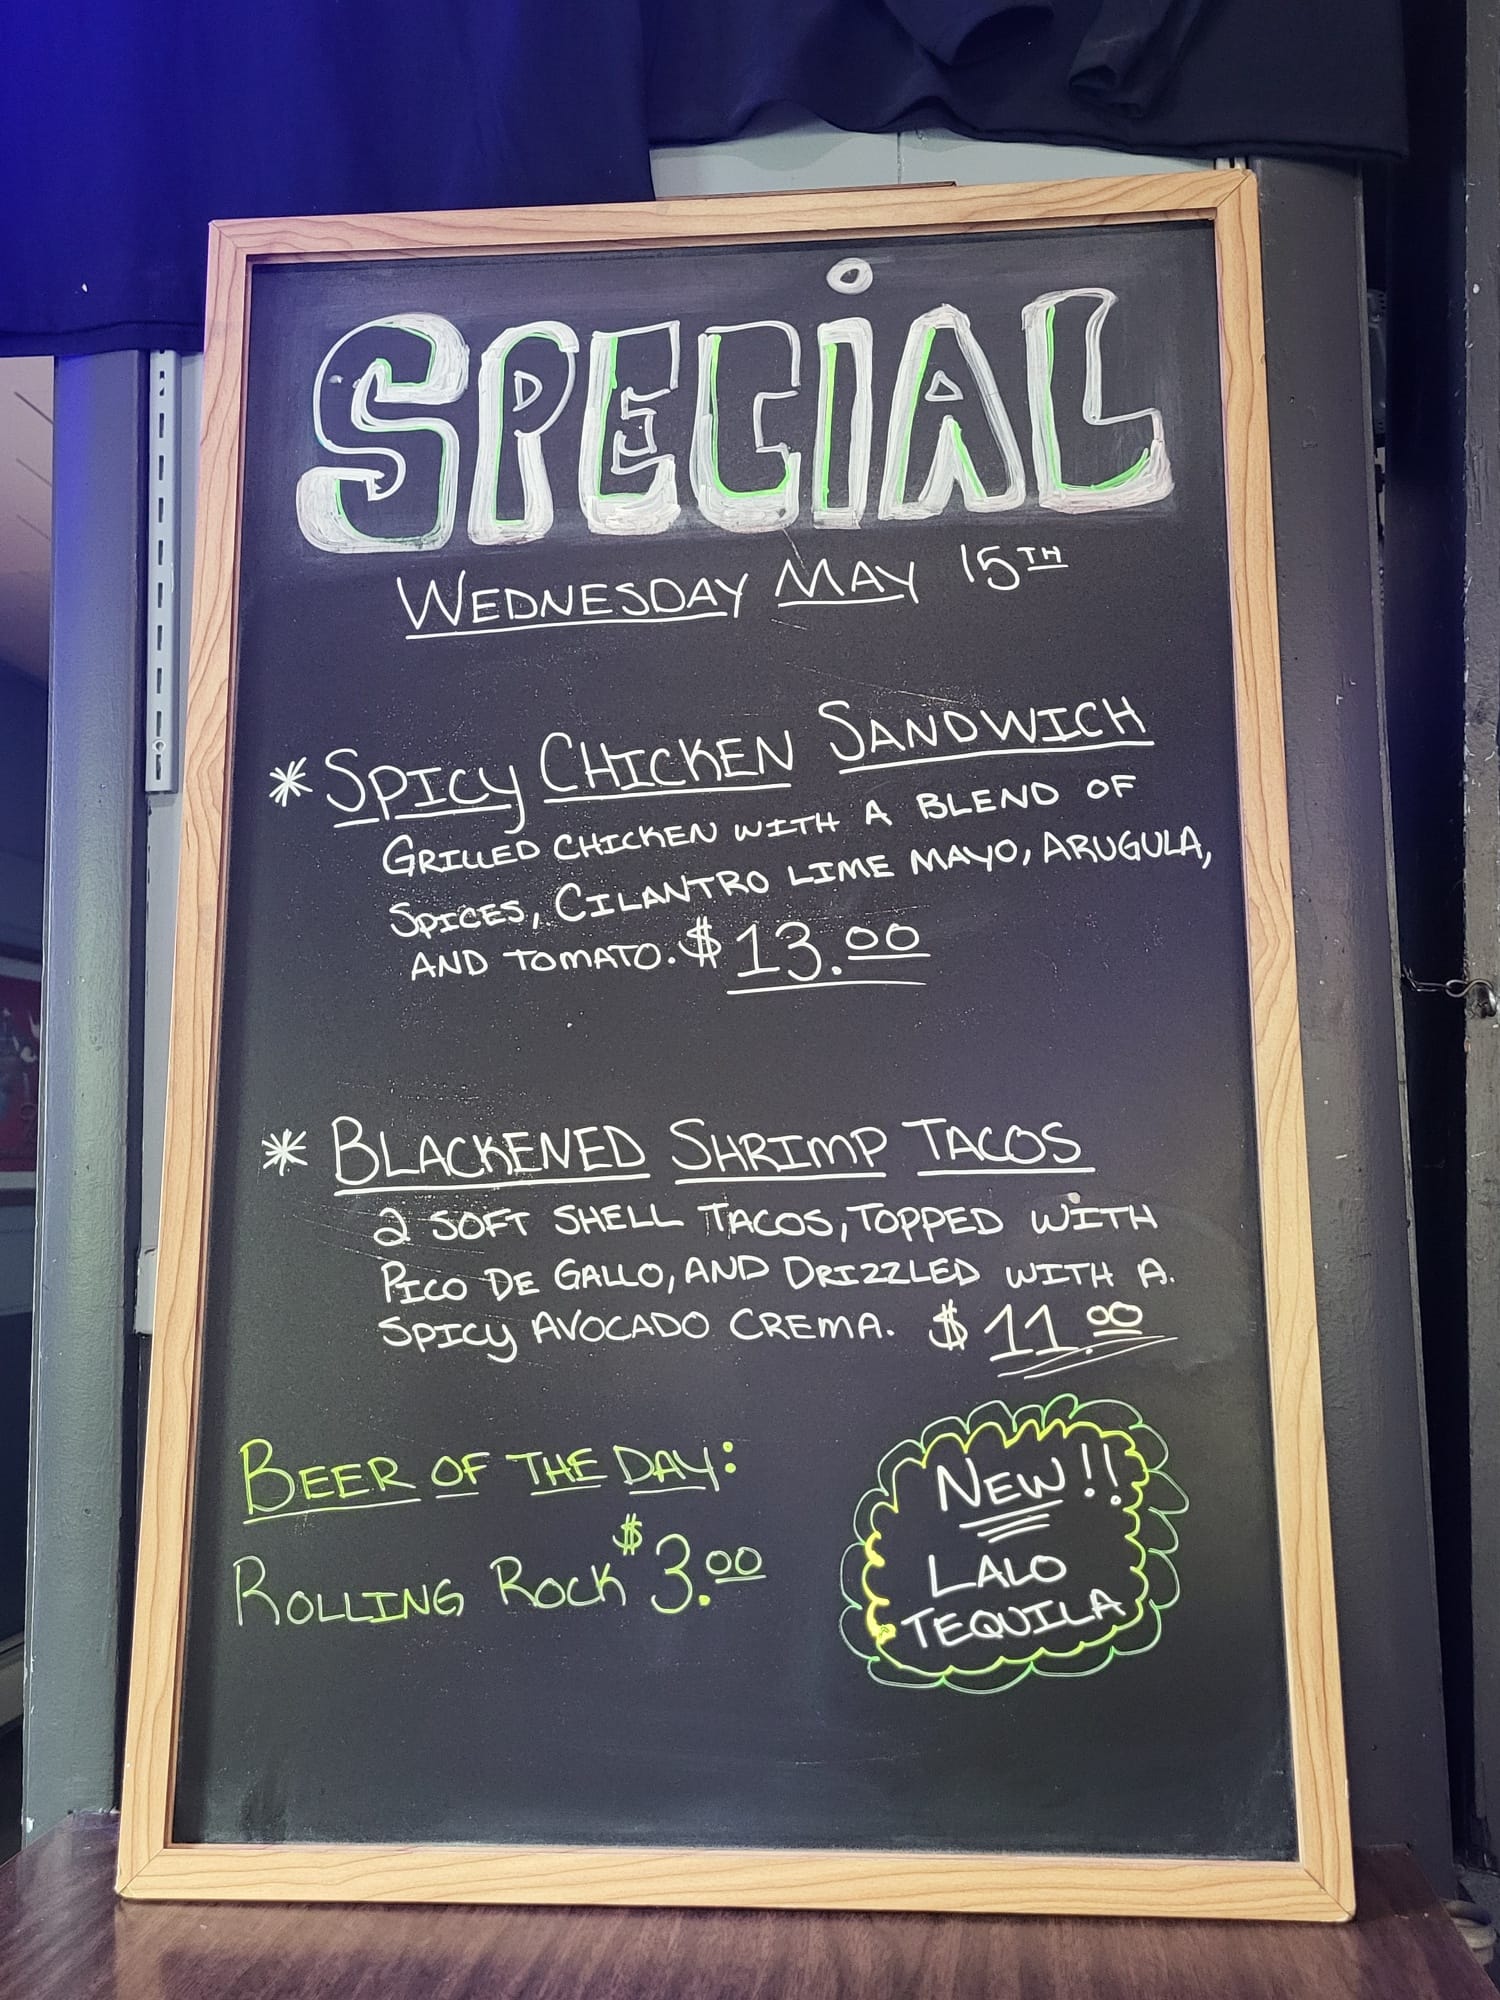 SPECiAL
WEDNESDAY MAY 15TH
* SPICY CHICKEN SANDWICH
GRILLED CHICKEN WITH A BLEND OF
SPICES, CILANTRO LIME MAYO, ARUGULA,
AND TOMATO. $13.00
* BLACKENED SHRIMP TACOS
2 SOFT SHELL TACOS, TOPPED WITH
PICO DE GALLO, AND DRIZZLED WITH A
SPICY AVOCADO CREMA. $11.00
BEER OF THE DAY:
ROLLING ROCK $3.00
NEW!!
LALO
TEQUILA